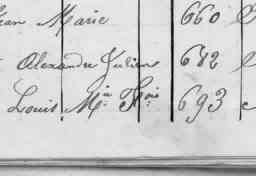 Jean Marie 660
Alexandre Julien 682
Louis Mie Fois 693